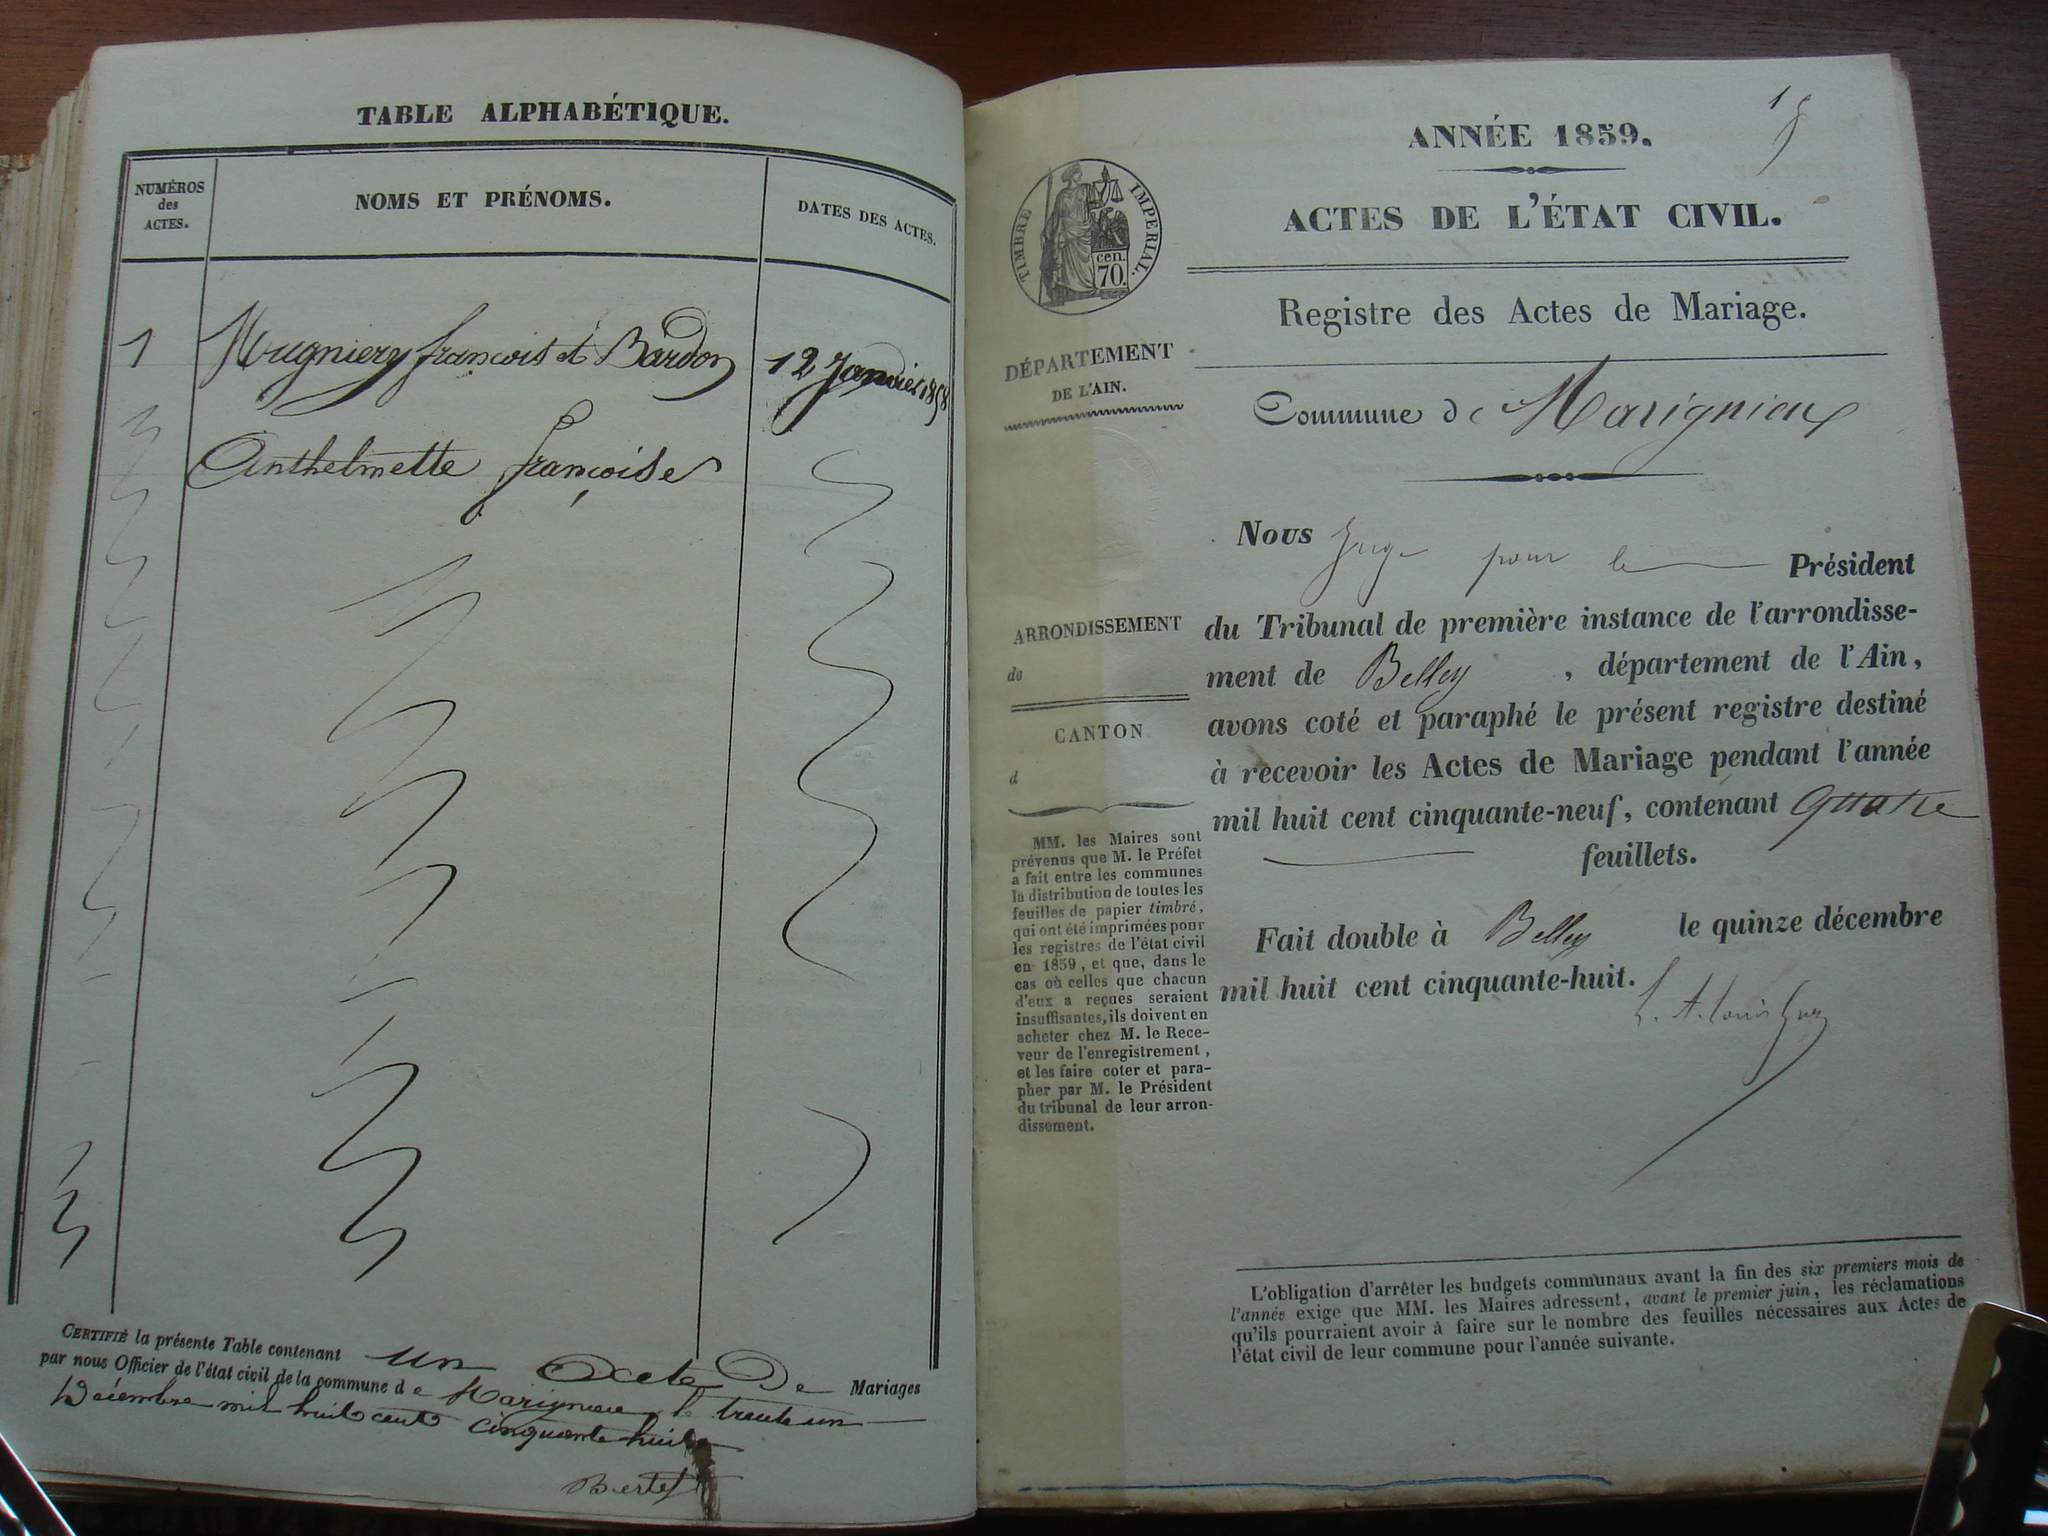 TABLE ALPHABÉTIQUE.
NUMÉROS
des
ACTES.
NOMS ET PRÉNOMS.
DATES DES ACTES.
1 Mugniery françois et Bardon 12 Janvier 1858
Anthelmette françoise
CERTIFIÉ la présente Table contenant un Acte De Mariages
par nous Officier de l'état civil de la commune de Marignieu le trente un
Décembre mil huit cent cinquante huit
Bertet
1
ANNÉE 1859.
ACTES DE L'ÉTAT CIVIL.
TIMBRE IMPERIAL.
cen.
70.
Registre des Actes de Mariage.
DÉPARTEMENT
DE L'AIN.
Commune de Marignieu
Nous Juge pour le Président
ARRONDISSEMENT
de
CANTON
d
du Tribunal de première instance de l'arrondisse-
ment de Belley , département de l'Ain,
avons coté et paraphé le présent registre destiné
à recevoir les Actes de Mariage pendant l'année
mil huit cent cinquante-neuf, contenant quatre
feuillets.
Fait double à Belley le quinze décembre
mil huit cent cinquante-huit.
MM. les Maires sont
prévenus que M. le Préfet
a fait entre les communes
la distribution de toutes les
feuilles de papier timbré,
qui ont été imprimées pour
les registres de l'état civil
en 1859, et que, dans le
cas où celles que chacun
d'eux a reçues seraient
insuffisantes, ils doivent en
acheter chez M. le Rece-
veur de l'enregistrement,
et les faire coter et para-
pher par M. le Président
du tribunal de leur arron-
dissement.
L'obligation d'arrêter les budgets communaux avant la fin des six premiers mois de
l'année exige que MM. les Maires adressent, avant le premier juin, les réclamations
qu'ils pourraient avoir à faire sur le nombre des feuilles nécessaires aux Actes de
l'état civil de leur commune pour l'année suivante.